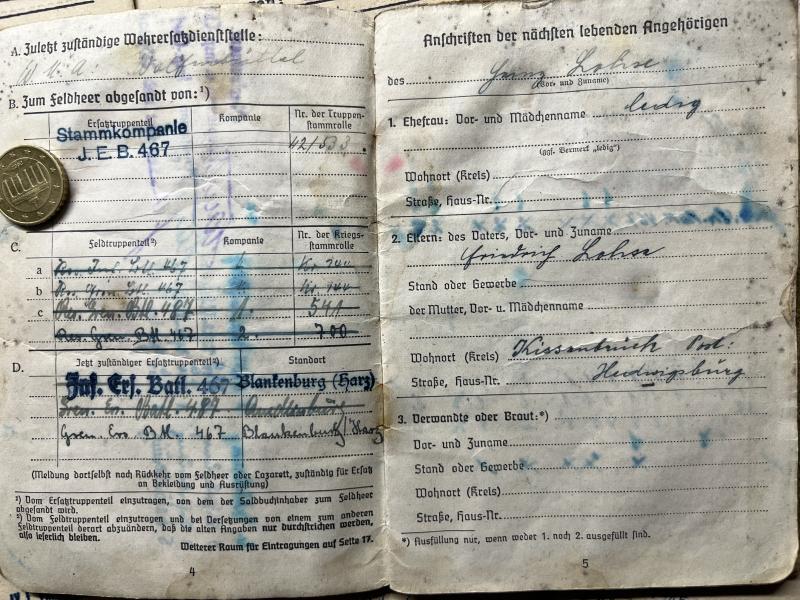 A. Zuletzt zuständige Wehrersatzdienststelle:
W. K. A. Wolfenbüttel
B. Zum Feldheer abgesandt von:¹)
Ersatztruppenteil Kompanie Nr. der Truppen-
stammrolle
Stammkompanie
J.E.B. 467
C. Feldtruppenteil²) Kompanie Nr. der Kriegs-
stammrolle
a 467
b 467
c Res. Gren. Btl. 487 1. 541
Res. Gren. Btl. 467 2. 700
D. Jetzt zuständiger Ersatztruppenteil²) Standort
Inf. Ers. Batl. 467 Blankenburg (Harz)
Gren. Er. Batl. 487 Quedlinburg
Gren. Ers. Btl. 467 Blankenburg/Harz
(Meldung dortselbst nach Rückkehr vom Feldheer oder Lazarett, zuständig für Ersatz
an Bekleidung und Ausrüstung)
¹) Vom Ersatztruppenteil einzutragen, von dem der Soldbuchinhaber zum Feldheer
abgesandt wird.
²) Vom Feldtruppenteil einzutragen und bei Versetzungen von einem zum anderen
Feldtruppenteil derart abzuändern, daß die alten Angaben nur durchstrichen werden,
also leserlich bleiben.
Weiterer Raum für Eintragungen auf Seite 17.
4
Anschriften der nächsten lebenden Angehörigen
des Lohse
(Vor- und Zuname)
1. Ehefrau: Vor- und Mädchenname ledig
(ggf. Vermerk „ledig")
Wohnort (Kreis)
Straße, Haus-Nr.
2. Eltern: des Vaters, Vor- und Zuname
Friedrich Lohse
Stand oder Gewerbe
der Mutter, Vor- u. Mädchenname
Wohnort (Kreis) Kissenbrück Post:
Straße, Haus-Nr. Hedwigsburg
3. Verwandte oder Braut:*)
Vor- und Zuname
Stand oder Gewerbe
Wohnort (Kreis)
Straße, Haus-Nr.
*) Ausfüllung nur, wenn weder 1. noch 2. ausgefüllt sind.
5